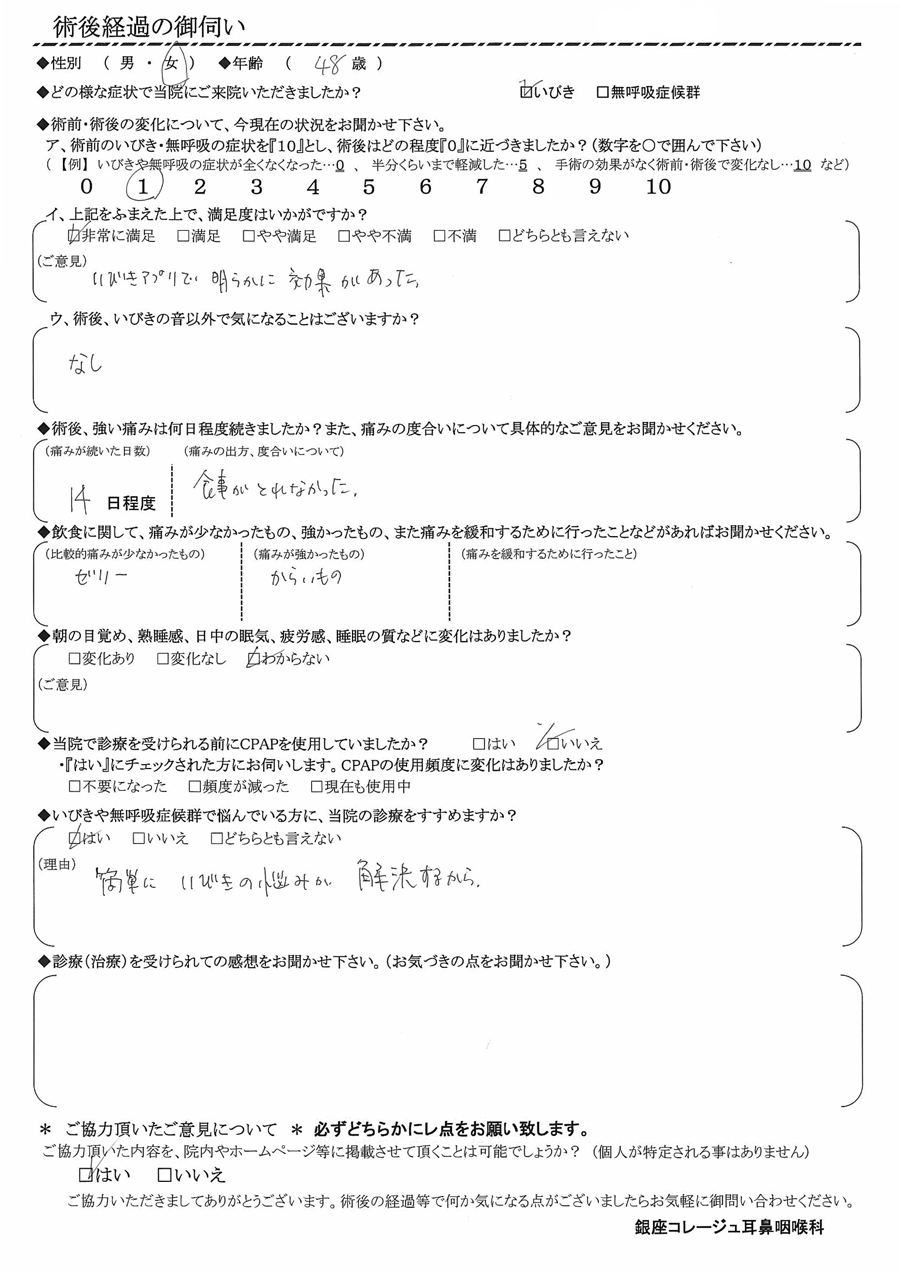 術後経過の御伺い
◆性別 ( 男 ・ 女 ) ◆年齢 ( 48 歳 )
◆どの様な症状で当院にご来院いただきましたか? ☑いびき □無呼吸症候群
◆術前・術後の変化について、今現在の状況をお聞かせ下さい。
ア、術前のいびき・無呼吸の症状を『10』とし、術後はどの程度『0』に近づきましたか?(数字を〇で囲んで下さい)
(【例】いびきや無呼吸の症状が全くなくなった…0 、 半分くらいまで軽減した…5 、 手術の効果がなく術前・術後で変化なし…10 など)
0 1 2 3 4 5 6 7 8 9 10
イ、上記をふまえた上で、満足度はいかがですか?
☑非常に満足 □満足 □やや満足 □やや不満 □不満 □どちらとも言えない
(ご意見)
いびきアプリで 明らかに 効果があった。
ウ、術後、いびきの音以外で気になることはございますか?
なし
◆術後、強い痛みは何日程度続きましたか?また、痛みの度合いについて具体的なご意見をお聞かせください。
(痛みが続いた日数) (痛みの出方、度合いについて)
14 日程度 食事がとれなかった。
◆飲食に関して、痛みが少なかったもの、強かったもの、また痛みを緩和するために行ったことなどがあればお聞かせください。
(比較的痛みが少なかったもの) (痛みが強かったもの) (痛みを緩和するために行ったこと)
ゼリー からいもの
◆朝の目覚め、熟睡感、日中の眠気、疲労感、睡眠の質などに変化はありましたか?
□変化あり □変化なし ☑わからない
(ご意見)
◆当院で診療を受けられる前にCPAPを使用していましたか? □はい ☑いいえ
・『はい』にチェックされた方にお伺いします。CPAPの使用頻度に変化はありましたか?
□不要になった □頻度が減った □現在も使用中
◆いびきや無呼吸症候群で悩んでいる方に、当院の診療をすすめますか?
☑はい □いいえ □どちらとも言えない
(理由)
簡単に いびきの悩みが 解決するから。
◆診療(治療)を受けられての感想をお聞かせ下さい。(お気づきの点をお聞かせ下さい。)
＊ ご協力頂いたご意見について ＊ 必ずどちらかにレ点をお願い致します。
ご協力頂いた内容を、院内やホームページ等に掲載させて頂くことは可能でしょうか? (個人が特定される事はありません)
☑はい □いいえ
ご協力いただきましてありがとうございます。術後の経過等で何か気になる点がございましたらお気軽に御問い合わせください。
銀座コレージュ耳鼻咽喉科